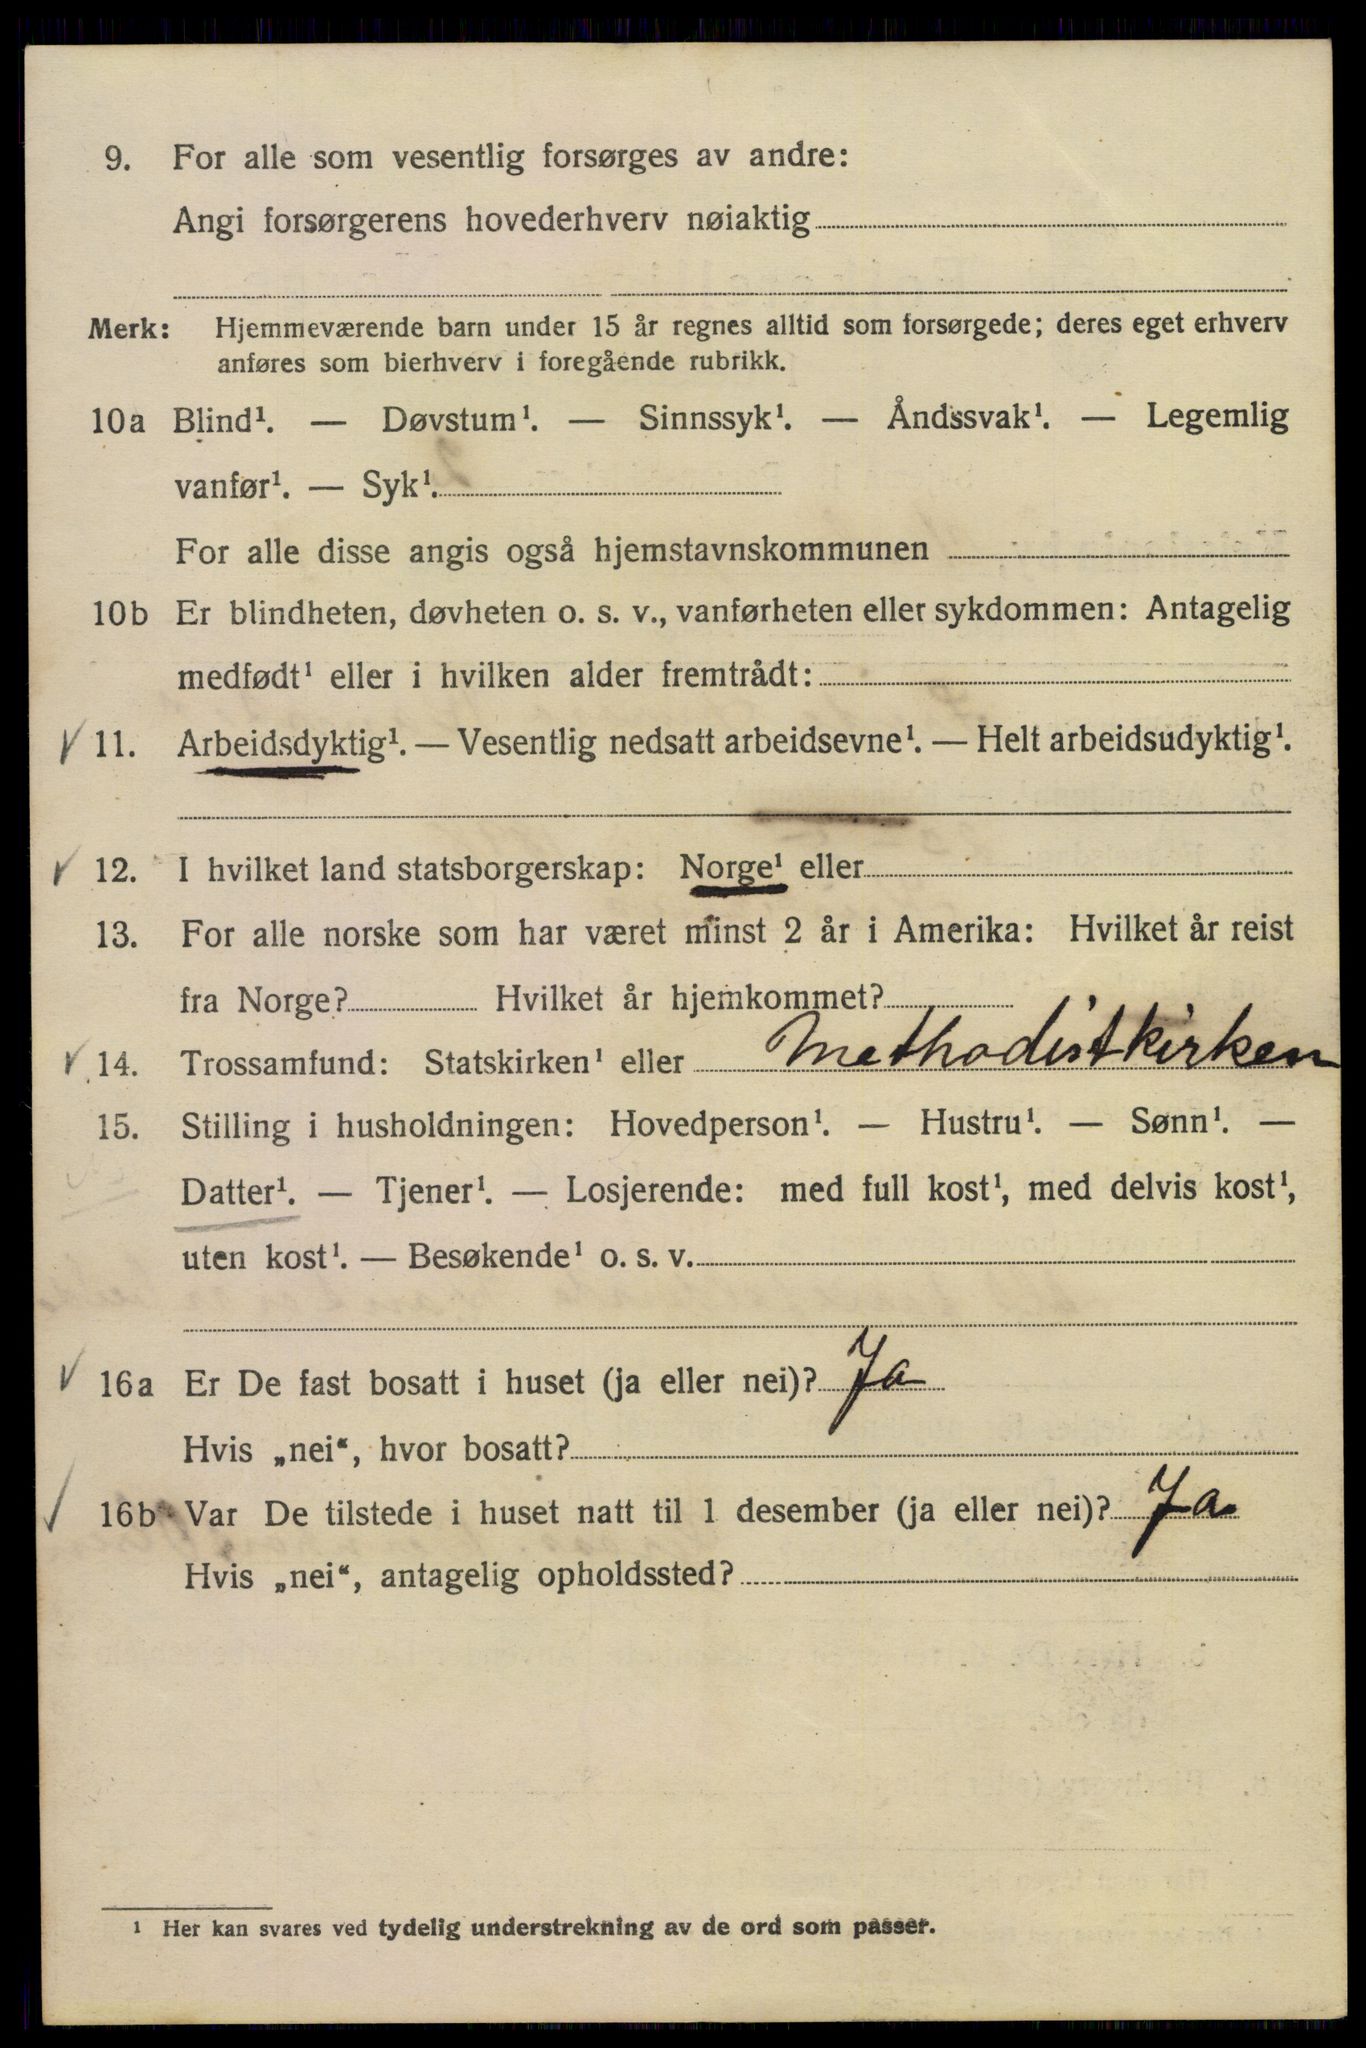 9. For alle som vesentlig forsørges av andre:
Angi forsørgerens hovederhverv nøiaktig
Merk: Hjemmeværende barn under 15 år regnes alltid som forsørgede; deres eget erhverv
anføres som bierhverv i foregående rubrikk.
10a Blind¹. — Døvstum¹. — Sinnssyk¹. — Åndssvak¹. — Legemlig
vanfør¹. — Syk¹.
For alle disse angis også hjemstavnskommunen
10b Er blindheten, døvheten o. s. v., vanførheten eller sykdommen: Antagelig
medfødt¹ eller i hvilken alder fremtrådt:
11. Arbeidsdyktig¹. — Vesentlig nedsatt arbeidsevne¹. — Helt arbeidsudyktig¹.
12. I hvilket land statsborgerskap: Norge¹ eller
13. For alle norske som har været minst 2 år i Amerika: Hvilket år reist
fra Norge? Hvilket år hjemkommet?
14. Trossamfund: Statskirken¹ eller Methodistkirken
15. Stilling i husholdningen: Hovedperson¹. — Hustru¹. — Sønn¹. —
Datter¹. — Tjener¹. — Losjerende: med full kost¹, med delvis kost¹,
uten kost¹. — Besøkende¹ o. s. v.
16a Er De fast bosatt i huset (ja eller nei)? Ja
Hvis „nei“, hvor bosatt?
16b Var De tilstede i huset natt til 1 desember (ja eller nei)? Ja
Hvis „nei“, antagelig opholdssted?
¹ Her kan svares ved tydelig understrekning av de ord som passer.